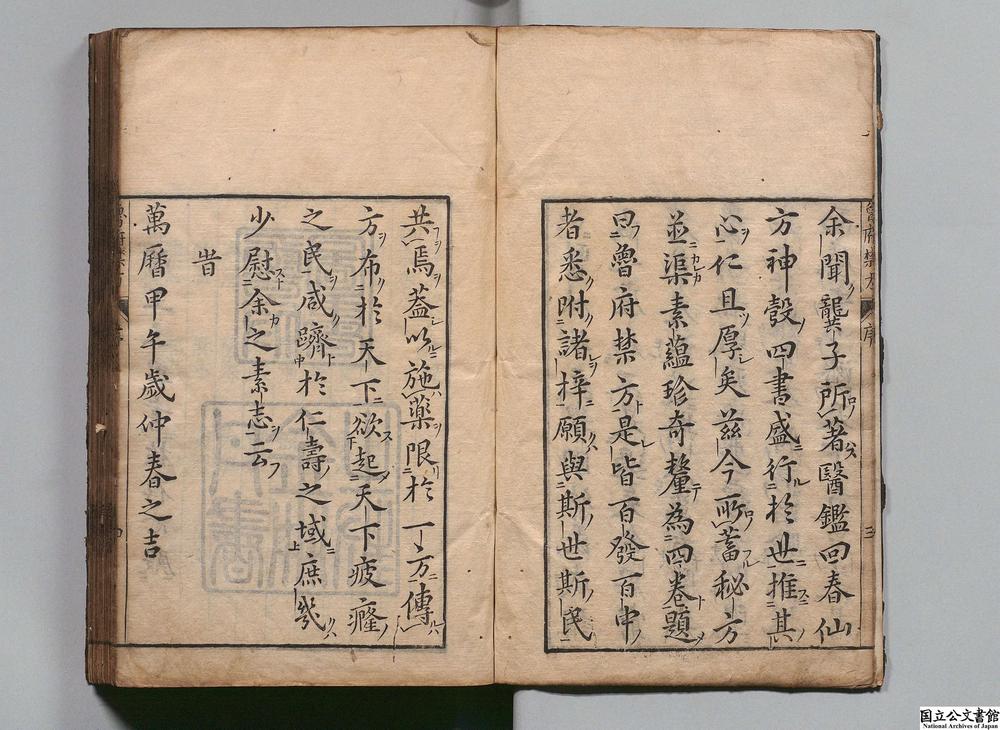 余聞龔子所著醫鑑回春仙
方神彀四書盛行於世推其
心仁且厚矣茲今所蓄秘方
並渠素蘊珍奇釐為四卷題
曰魯府禁方是皆百發百中
者悉附諸梓願與斯世斯民
共焉葢以施藥限於一方傳
方布於天下欲起天下疲癃
之民咸躋於仁壽之域庶幾
少慰余之素志云
旹
萬曆甲午歲仲春之吉
国立公文書館
National Archives of Japan